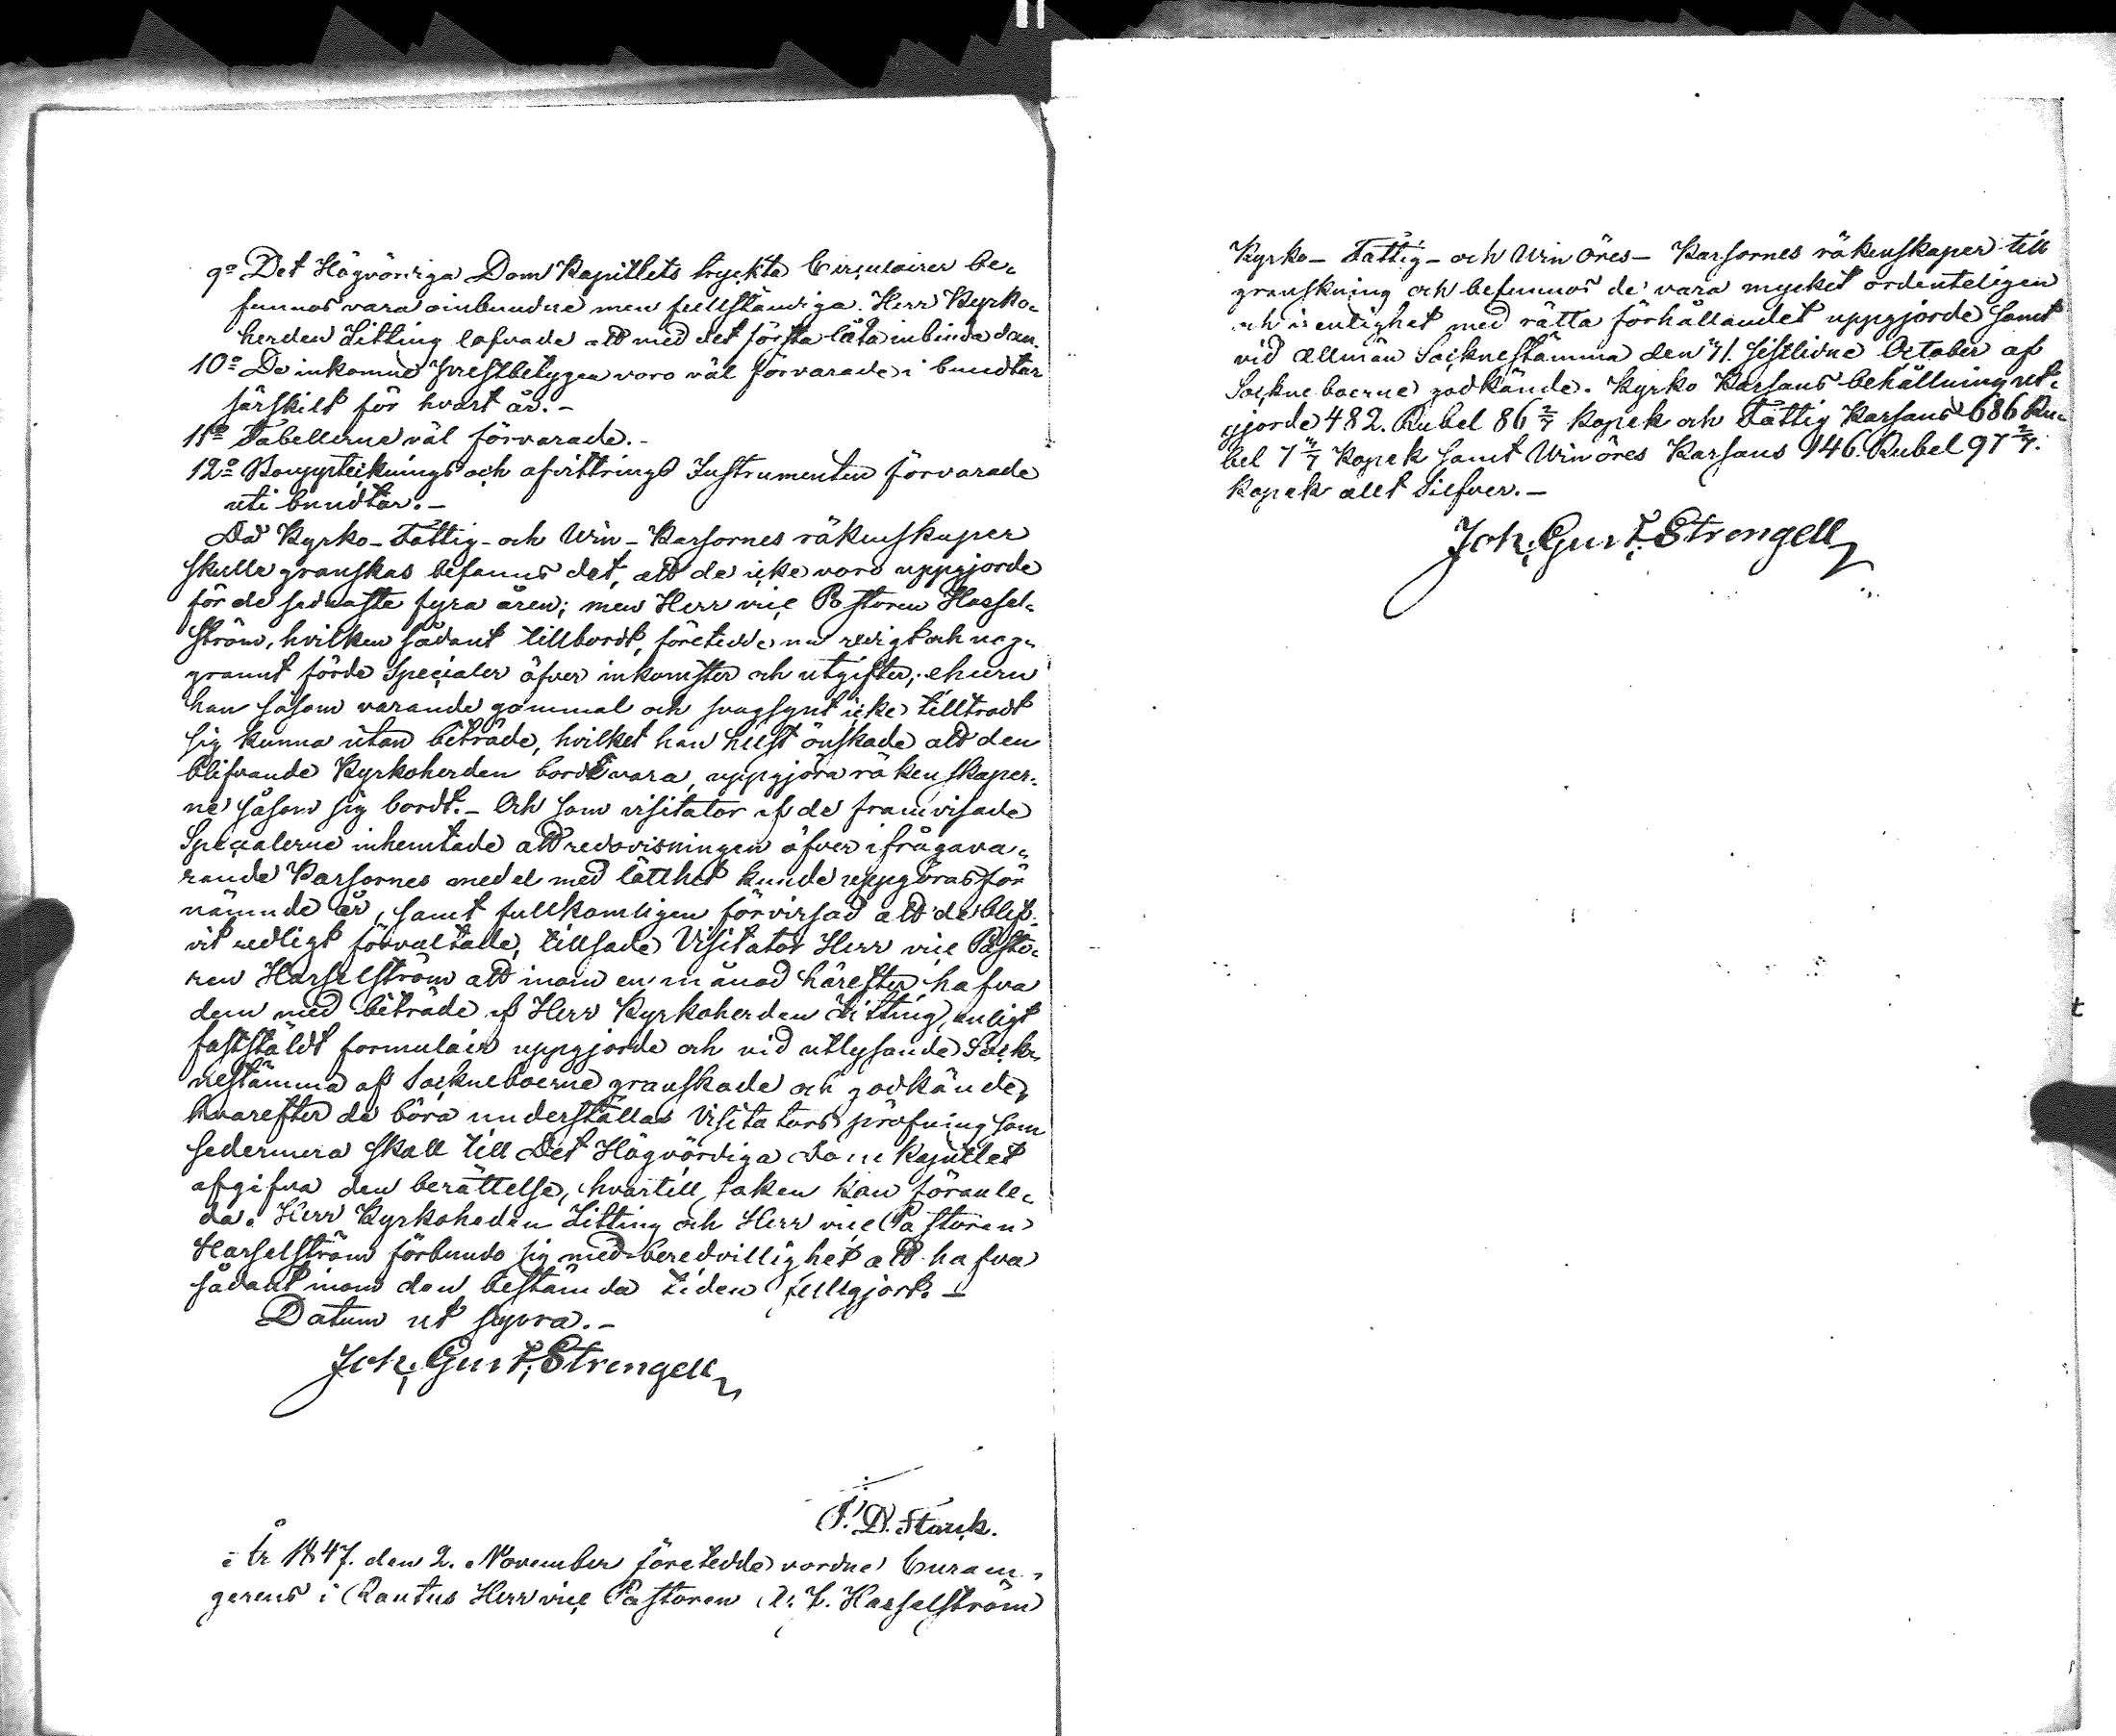 9o Det Högvördiga Dom Kapitlets tryckta Circulairer be-
funnos vara oinbundne men fullständiga. Herr Kyrko-
herden Litting lofvade att med det första låta inbinda dem.
10o De inkomne Prestbetygen voro väl förvarade i bundtar
särskilt för hvart år.-
11o Tabellerne väl förvarade.-
12o Bouppteknings och afvittrings Instrumenten förvarade
uti bundtar.-
Då Kyrko- Fattig- och Win- Kassornes räkenskaper
skulle granskas befanns det, att de icke voro uppgjorde
för de sednaste fyra åren; men Herr vice Pastoren Hassel-
ström, hvilken sådant tillbordt, företedde nu redigt och nog-
grannt förde Specialer öfver inkomster och utgifter, ehuru
han såsom varande gammal och svagsynt icke tilltrodt
sig kunna utan biträde, hvilket han helst önskade att den
blifvande Kyrkoherden borde vara, uppgjöra räkenskaper-
ne såsom sig bordt.- Och som visitator af de framvisade
Specialerne inhemtade att redovisningen öfver ifrågava-
rande Kassornes medel med lätthet kunde uppgöras för
nämnde år, samt fullkomligen förvissad att de blif-
vit redligt förvaltade, tillsade Visitator Herr vice Pasto-
ren Hasselström att inom en månad härefter hafva
dem med biträde af Herr Kyrkoherden Litting, enligt
fastställdt formulair uppgjorde och vid utlysande Sock-
nestämma af Sockneboerne granskade och godkände,
hvarefter de böra underställas Visitators pröfning som
sedermera skall till Det Högvördiga Dom Kapitlet
afgifva den berättelse, hvartill saken kan föranle-
da. Herr Kyrkoheden Litting och Herr vice Pastoren
Hasselström förbundo sig med beredvillighet att hafva
sådant inom den bestämda tiden fullgjort. -
Datum ut supra.-
Joh. Gust. Strengell
D. Starck.
År 1847. den 2. November företedde vordne Curam-
gerens i Rautus Herr vice Pastoren Hasselström
Kyrko- Fattig- och Win öres- Kassornes räkenskaper till
granskning och befunnos de vara mycket ordenteligen
och i enlighet med rätta förhållandet uppgjorde samt
vid allmän Socknestämma den 31. sistlidne October af
Sockneboerne godkände. Kyrko Kassans behållning ut-
gjorde 482. Rubel 86 2/7 Kopek och Fattig Kassans 686 Ru-
bel 7 4/7 Kopek samt Win öres Kassans 146. Rubel 97 2/7.
Kopek allt Silfver.-
Joh. Gust. Strengell